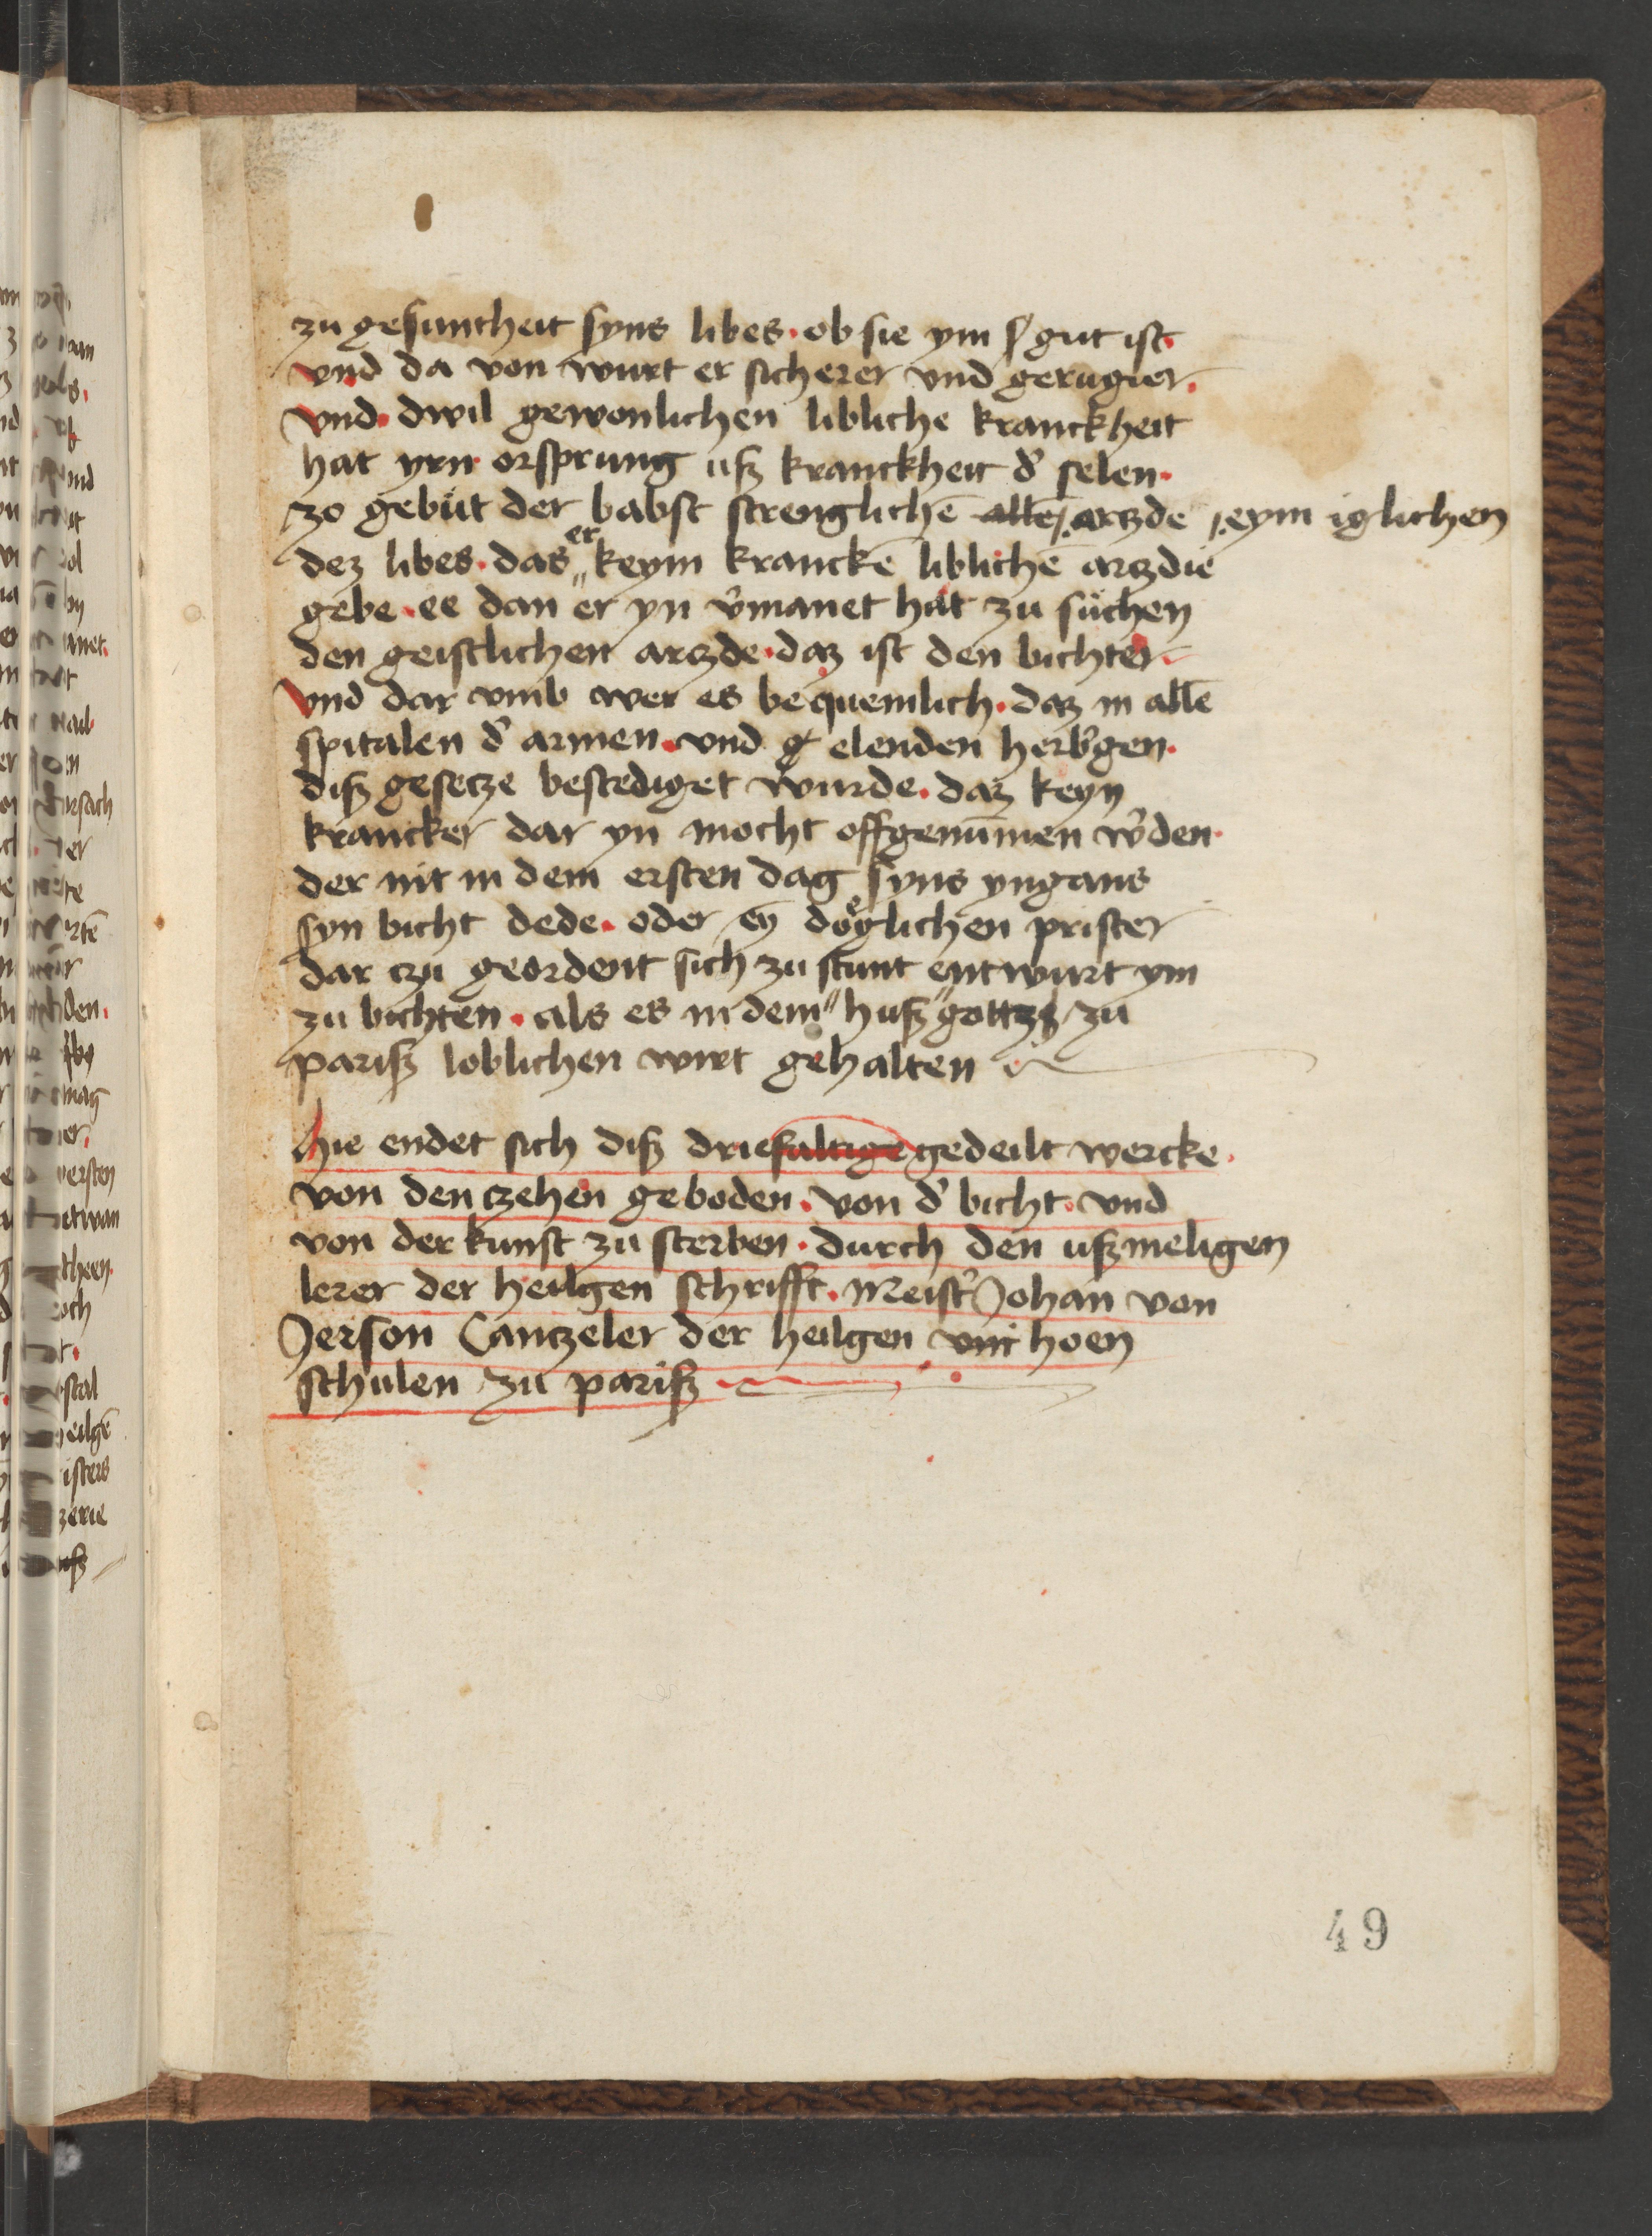 zu gesuntheit syns libes · ob sie ym gut ist ·
vnd da von wurt er sicherer vnd gerugier ·
vnd · dwil gewonlichen libliche kranckheit
hat yrn orsprung uß kranckheit d' selen ·
zo gebüt der babst strenglichē allē arczde eym iglichen
dez libes · das er keym kranckē liblichē arczdie
gebe · ee dan er yn v'manet hat zu süchen
den geistlichen arczde · daz ist den bichter
vnd dar vmb wer es bequemlich · daz in allē
spitalen d' armen · vnd elenden herb'gen ·
diß gesecze bestediget wurde · daz keyn
krancker dar yn mocht offgenūmen w'den ·
der nit in dem ersten dag syns yngans
syn bicht dede · oder eȳ döglichen prister
dar czu geordent sich zu stunt entwurt ym
zu bichten · als es in dem " huß " gottz zu
pariß loblichen wirt gehalten
hie endet sich diß driefaltige gedeilt wercke ·
von den czehen geboden · von d' bicht · vnd
von der kunst zu sterben · durch den ußmeligen
lerer der heilgen schrifft · Meist' Johan von
Jerson Canczeler der heilgen vnt hoen
schulen zu pariß
49